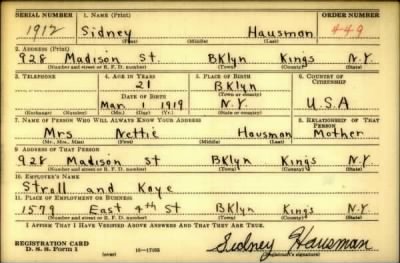 SERIAL NUMBER 1. NAME (Print) ORDER NUMBER
1912 Sidney Hausman 449
(First) (Middle) (Last)
2. ADDRESS (Print)
928 Madison St. BKlyn Kings N.Y.
(Number and street or R. F. D. number) (Town) (County) (State)
3. TELEPHONE 4. AGE IN YEARS 5. PLACE OF BIRTH 6. COUNTRY OF CITIZENSHIP
21 BKlyn
DATE OF BIRTH (Town or county)
Mar. 1 1919 N.Y. U.S.A
(Exchange) (Number) (Mo.) (Day) (Yr.) (State or country)
7. NAME OF PERSON WHO WILL ALWAYS KNOW YOUR ADDRESS 8. RELATIONSHIP OF THAT PERSON
Mrs Nettie Hausman Mother
(Mr., Mrs., Miss) (First) (Middle) (Last)
9. ADDRESS OF THAT PERSON
928 Madison St BKlyn Kings N.Y.
(Number and street or R. F. D. number) (Town) (County) (State)
10. EMPLOYER'S NAME
Stroll and Kaye
11. PLACE OF EMPLOYMENT OR BUSINESS
1579 East 4th St BKlyn Kings N.Y.
(Number and street or R. F. D. number) (Town) (County) (State)
I AFFIRM THAT I HAVE VERIFIED ABOVE ANSWERS AND THAT THEY ARE TRUE.
REGISTRATION CARD
D. S. S. Form 1 (over) 16—17105 Sidney Hausman
(Registrant's signature)